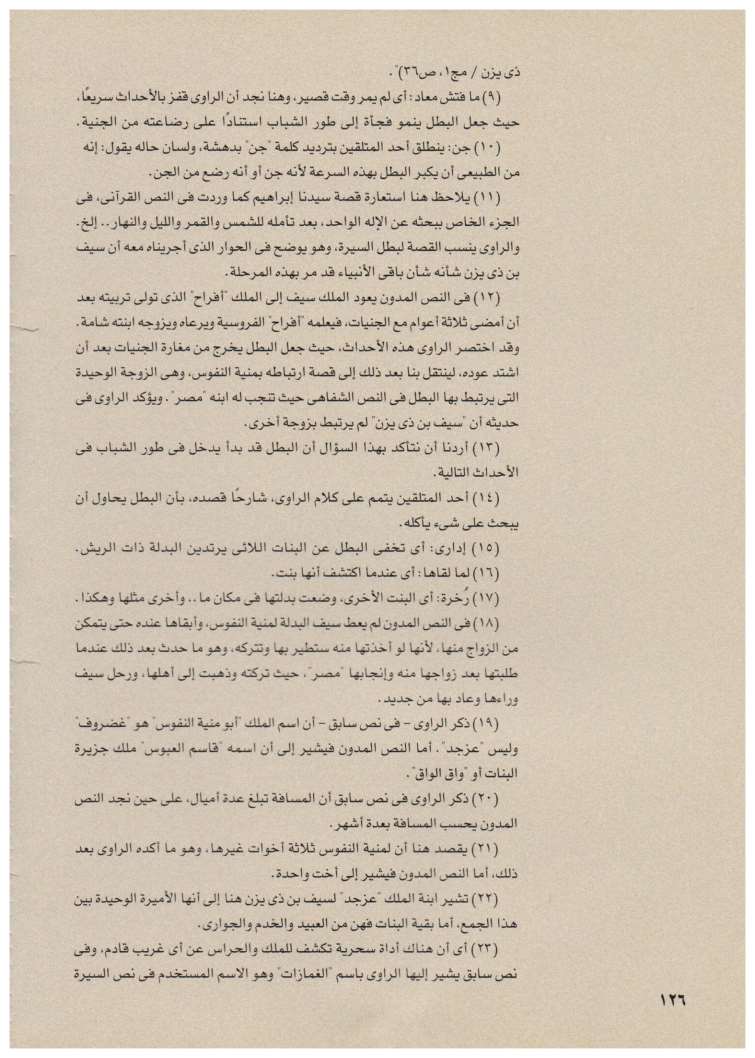 ذى يزن / مج١، ص٣٦)".
(٩) ما فتش معاد: أى لم يمر وقت قصير، وهنا نجد أن الراوى قفز بالأحداث سريعًا،
حيث جعل البطل ينمو فجأة إلى طور الشباب استنادًا على رضاعته من الجنية.
(١٠) جن: ينطلق أحد المتلقين بترديد كلمة "جن" بدهشة، ولسان حاله يقول: إنه
من الطبيعى أن يكبر البطل بهذه السرعة لأنه جن أو أنه رضع من الجن.
(١١) يلاحظ هنا استعارة قصة سيدنا إبراهيم كما وردت فى النص القرآنى، فى
الجزء الخاص ببحثه عن الإله الواحد، بعد تأمله للشمس والقمر والليل والنهار.. إلخ.
والراوى ينسب القصة لبطل السيرة، وهو يوضح فى الحوار الذى أجريناه معه أن سيف
بن ذى يزن شأنه شأن باقى الأنبياء قد مر بهذه المرحلة.
(١٢) فى النص المدون يعود الملك سيف إلى الملك "أفراح" الذى تولى تربيته بعد
أن أمضى ثلاثة أعوام مع الجنيات، فيعلمه "أفراح" الفروسية ويرعاه ويزوجه ابنته شامة.
وقد اختصر الراوى هذه الأحداث، حيث جعل البطل يخرج من مغارة الجنيات بعد أن
اشتد عوده، لينتقل بنا بعد ذلك إلى قصة ارتباطه بمنية النفوس، وهى الزوجة الوحيدة
التى يرتبط بها البطل فى النص الشفاهى حيث تنجب له ابنه "مصر". ويؤكد الراوى فى
حديثه أن "سيف بن ذى يزن" لم يرتبط بزوجة أخرى.
(١٣) أردنا أن نتأكد بهذا السؤال أن البطل قد بدأ يدخل فى طور الشباب فى
الأحداث التالية.
(١٤) أحد المتلقين يتمم على كلام الراوى، شارحًا قصده، بأن البطل يحاول أن
يبحث على شىء يأكله.
(١٥) إدارى: أى تخفى البطل عن البنات اللائى يرتدين البدلة ذات الريش.
(١٦) لما لقاها: أى عندما اكتشف أنها بنت.
(١٧) رُخرة: أى البنت الأخرى، وضعت بدلتها فى مكان ما.. وأخرى مثلها وهكذا.
(١٨) فى النص المدون لم يعط سيف البدلة لمنية النفوس، وأبقاها عنده حتى يتمكن
من الزواج منها، لأنها لو أخذتها منه ستطير بها وتتركه، وهو ما حدث بعد ذلك عندما
طلبتها بعد زواجها منه وإنجابها "مصر"، حيث تركته وذهبت إلى أهلها، ورحل سيف
وراءها وعاد بها من جديد.
(١٩) ذكر الراوى – فى نص سابق – أن اسم الملك "أبو منية النفوس" هو "غضروف"
وليس "عزجد". أما النص المدون فيشير إلى أن اسمه "قاسم العبوس" ملك جزيرة
البنات أو "واق الواق".
(٢٠) ذكر الراوى فى نص سابق أن المسافة تبلغ عدة أميال، على حين نجد النص
المدون يحسب المسافة بعدة أشهر.
(٢١) يقصد هنا أن لمنية النفوس ثلاثة أخوات غيرها، وهو ما أكده الراوى بعد
ذلك، أما النص المدون فيشير إلى أخت واحدة.
(٢٢) تشير ابنة الملك "عزجد" لسيف بن ذى يزن هنا إلى أنها الأميرة الوحيدة بين
هذا الجمع، أما بقية البنات فهن من العبيد والخدم والجوارى.
(٢٣) أى أن هناك أداة سحرية تكشف للملك والحراس عن أى غريب قادم، وفى
نص سابق يشير إليها الراوى باسم "الغمازات" وهو الاسم المستخدم فى نص السيرة
١٢٦